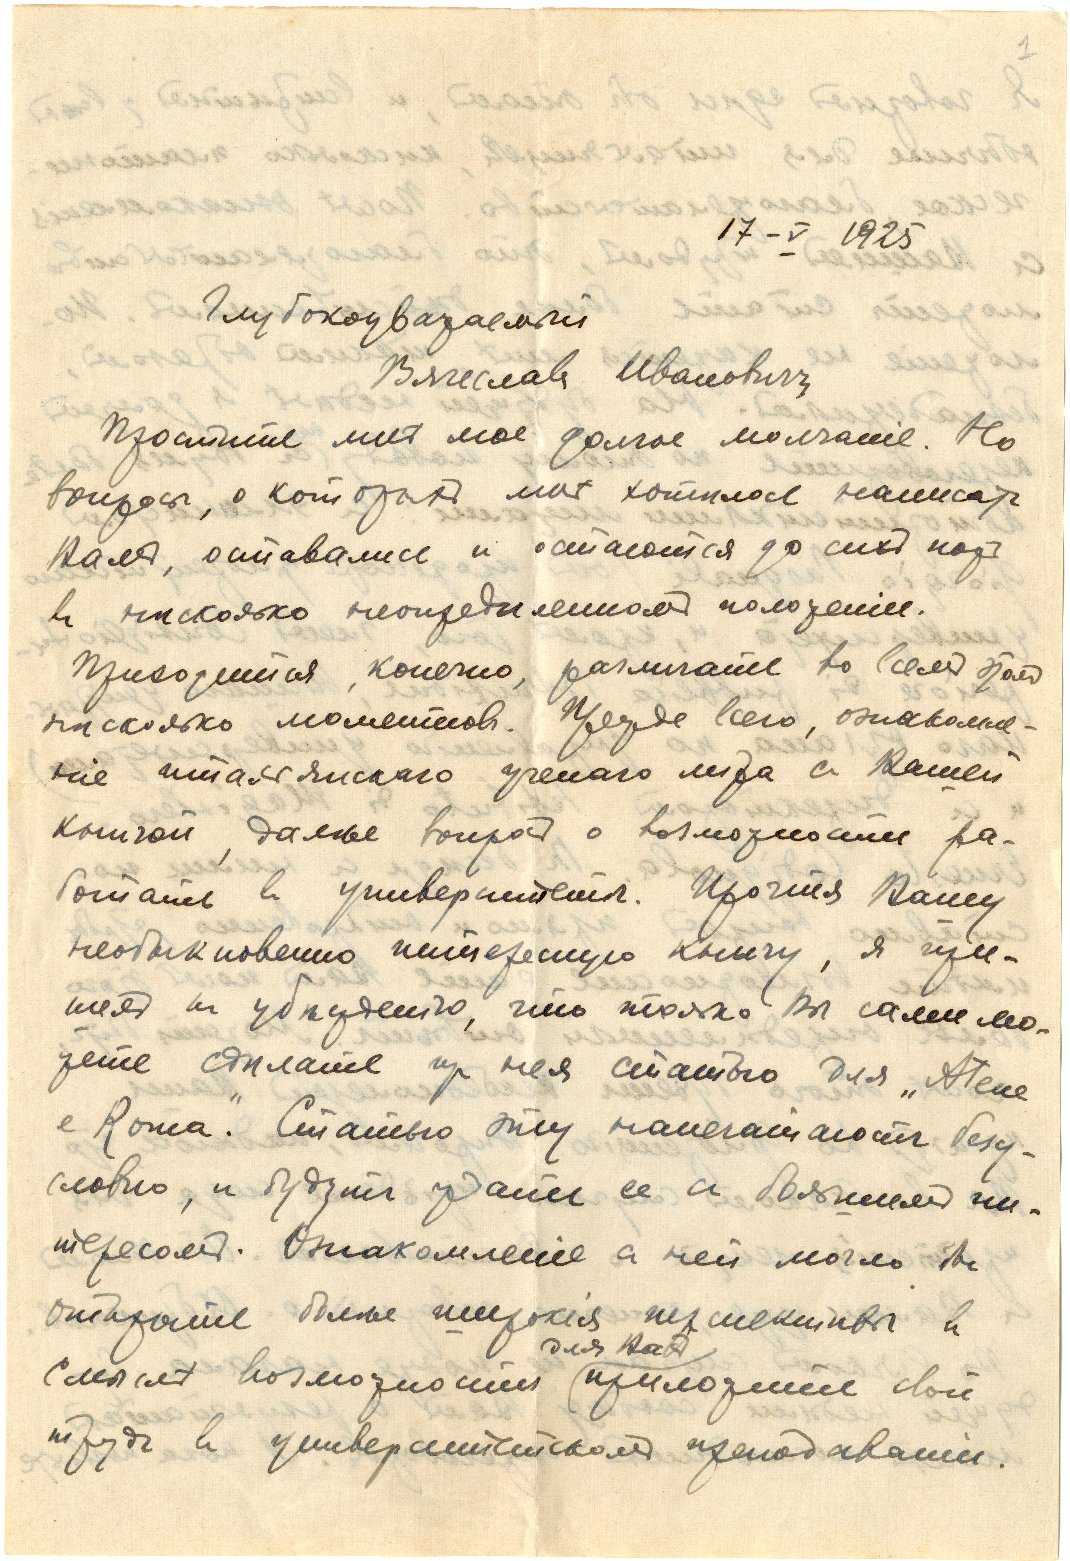 1
17-V 1925
Глубокоуважаемый
Вячеславъ Ивановичъ
Простите мнѣ мое долгое молчаніе. Но
вопросы, о которыхъ мнѣ хотѣлось написать
Вамъ, оставались и остаются до сихъ поръ
въ нѣсколько неопредѣленномъ положеніи.
Приходится, конечно, различать во всемъ этомъ
нѣсколько моментовъ. Прежде всего, ознакомле-
ніе итальянскаго ученаго міра съ Вашей
книгой, далѣе вопросъ о возможности ра-
ботать въ университетѣ. Прочтя Вашу
необыкновенно интересную книгу, я при-
шелъ къ убѣжденію, что только Вы сами мо-
жете сдѣлать изъ нея статью для „Atene
e Roma". Статью эту напечатаютъ безу-
словно, и будутъ ждать ее съ большимъ ин-
тересомъ. Ознакомленіе съ ней могло бы
открыть болѣе широкія перспективы въ
смыслѣ возможности для Васъ приложить свой
трудъ въ университетскомъ преподаваніи.